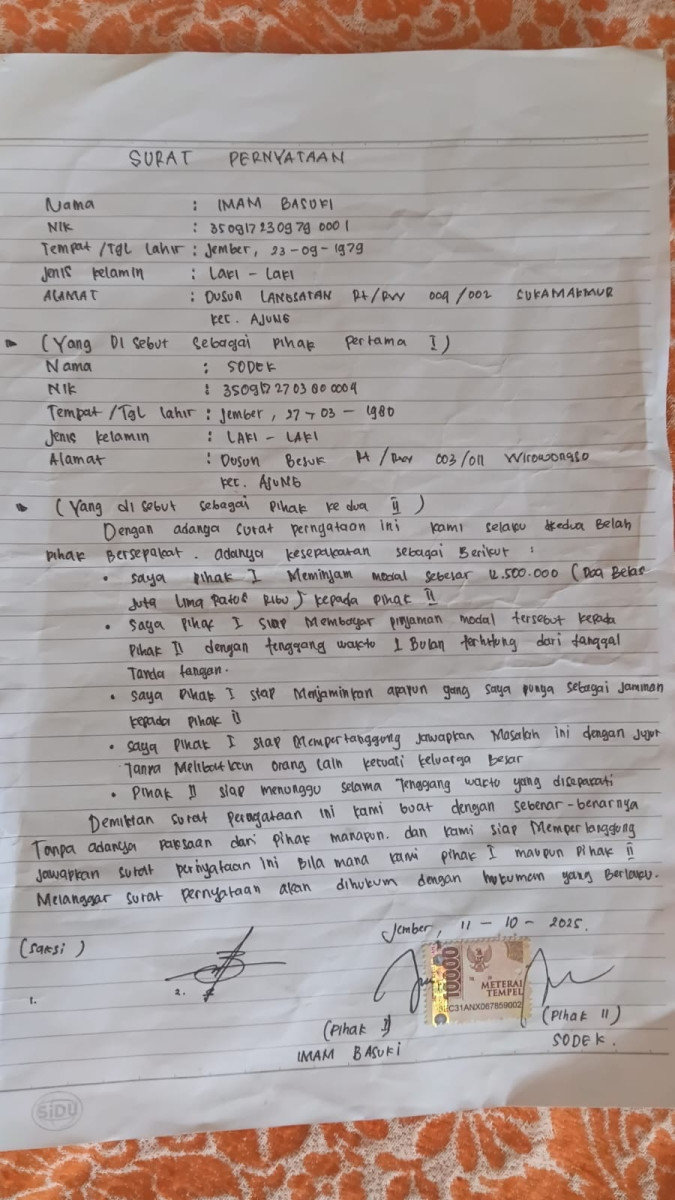 SURAT PERNYATAAN
Nama : IMAM BASUKI
NIK : 3509172309790001
Tempat /Tgl Lahir : Jember, 23-09-1979
Jenis kelamin : LAKI - LAKI
ALAMAT : DUSUN LANGSATAN Rt/RW 004/002 SUKAMAKMUR
kec. AJUNG
(Yang Di sebut sebagai Pihak pertama I)
Nama : SODEK
NIK : 3509172703800004
Tempat /Tgl lahir : Jember, 27-03-1980
Jenis kelamin : LAKI - LAKI
Alamat : Dusun Besuk Rt/Rw 003/011 Wirowongso
kec. AJUNG
(Yang di sebut sebagai Pihak ke dua II)
Dengan adanya surat perngataan ini kami selaku kedua Belah
pihak Bersepakat. adanya kesepakatan sebagai Berikut :
• saya pihak I Meminjam modal sebesar 12.500.000 (Doa Belas
Juta Lima Ratos Ribu) kepada pihak II
• Saya pihak I siap Membayar pinjaman modal tersebut kepada
Pihak II dengan tenggang wakto 1 Bulan terhitung dari tanggal
Tanda tangan.
• saya Pihak I siap Menjaminkan apapun yang saya punya sebagai Jaminan
kepada pihak II
• saya pihak I siap Mempertanggung Jawapkan Masalah ini dengan Jujur
Tanpa Melibatkan orang lain kecuali keluarga Besar
• Pihak II siap menunggu selama Tenggang wakto yang disepakati
Demikian surat perngataan ini kami buat dengan sebenar-benarnya
Tanpa adanya paksaan dari pihak manapun. dan kami siap Mempertanggung
Jawapkan surat pernyataan ini Bila mana kami pihak I maupun Pihak II
Melanggar surat pernyataan akan dihukum dengan hukuman yang Berlaku.
Jember, 11-10-2025.
(saksi)
1.
2.
10000
METERAI
TEMPEL
C31ANX067859002
(Pihak I) (Pihak II)
IMAM BASUKI SODEK.
SiDU